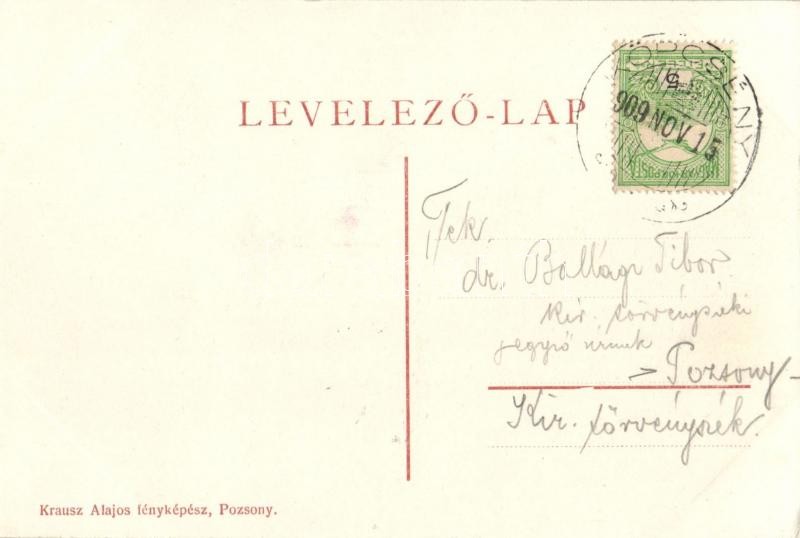 LEVELEZŐ-LAP
KÖPCSÉNY
909 NOV. 15
MAGYAR KIR. POSTA
5
Tek.
dr. Ballagi Tibor
kir. törvényszéki
jegyző úrnak
Pozsony
Kir. törvényszék.
Krausz Alajos fényképész, Pozsony.